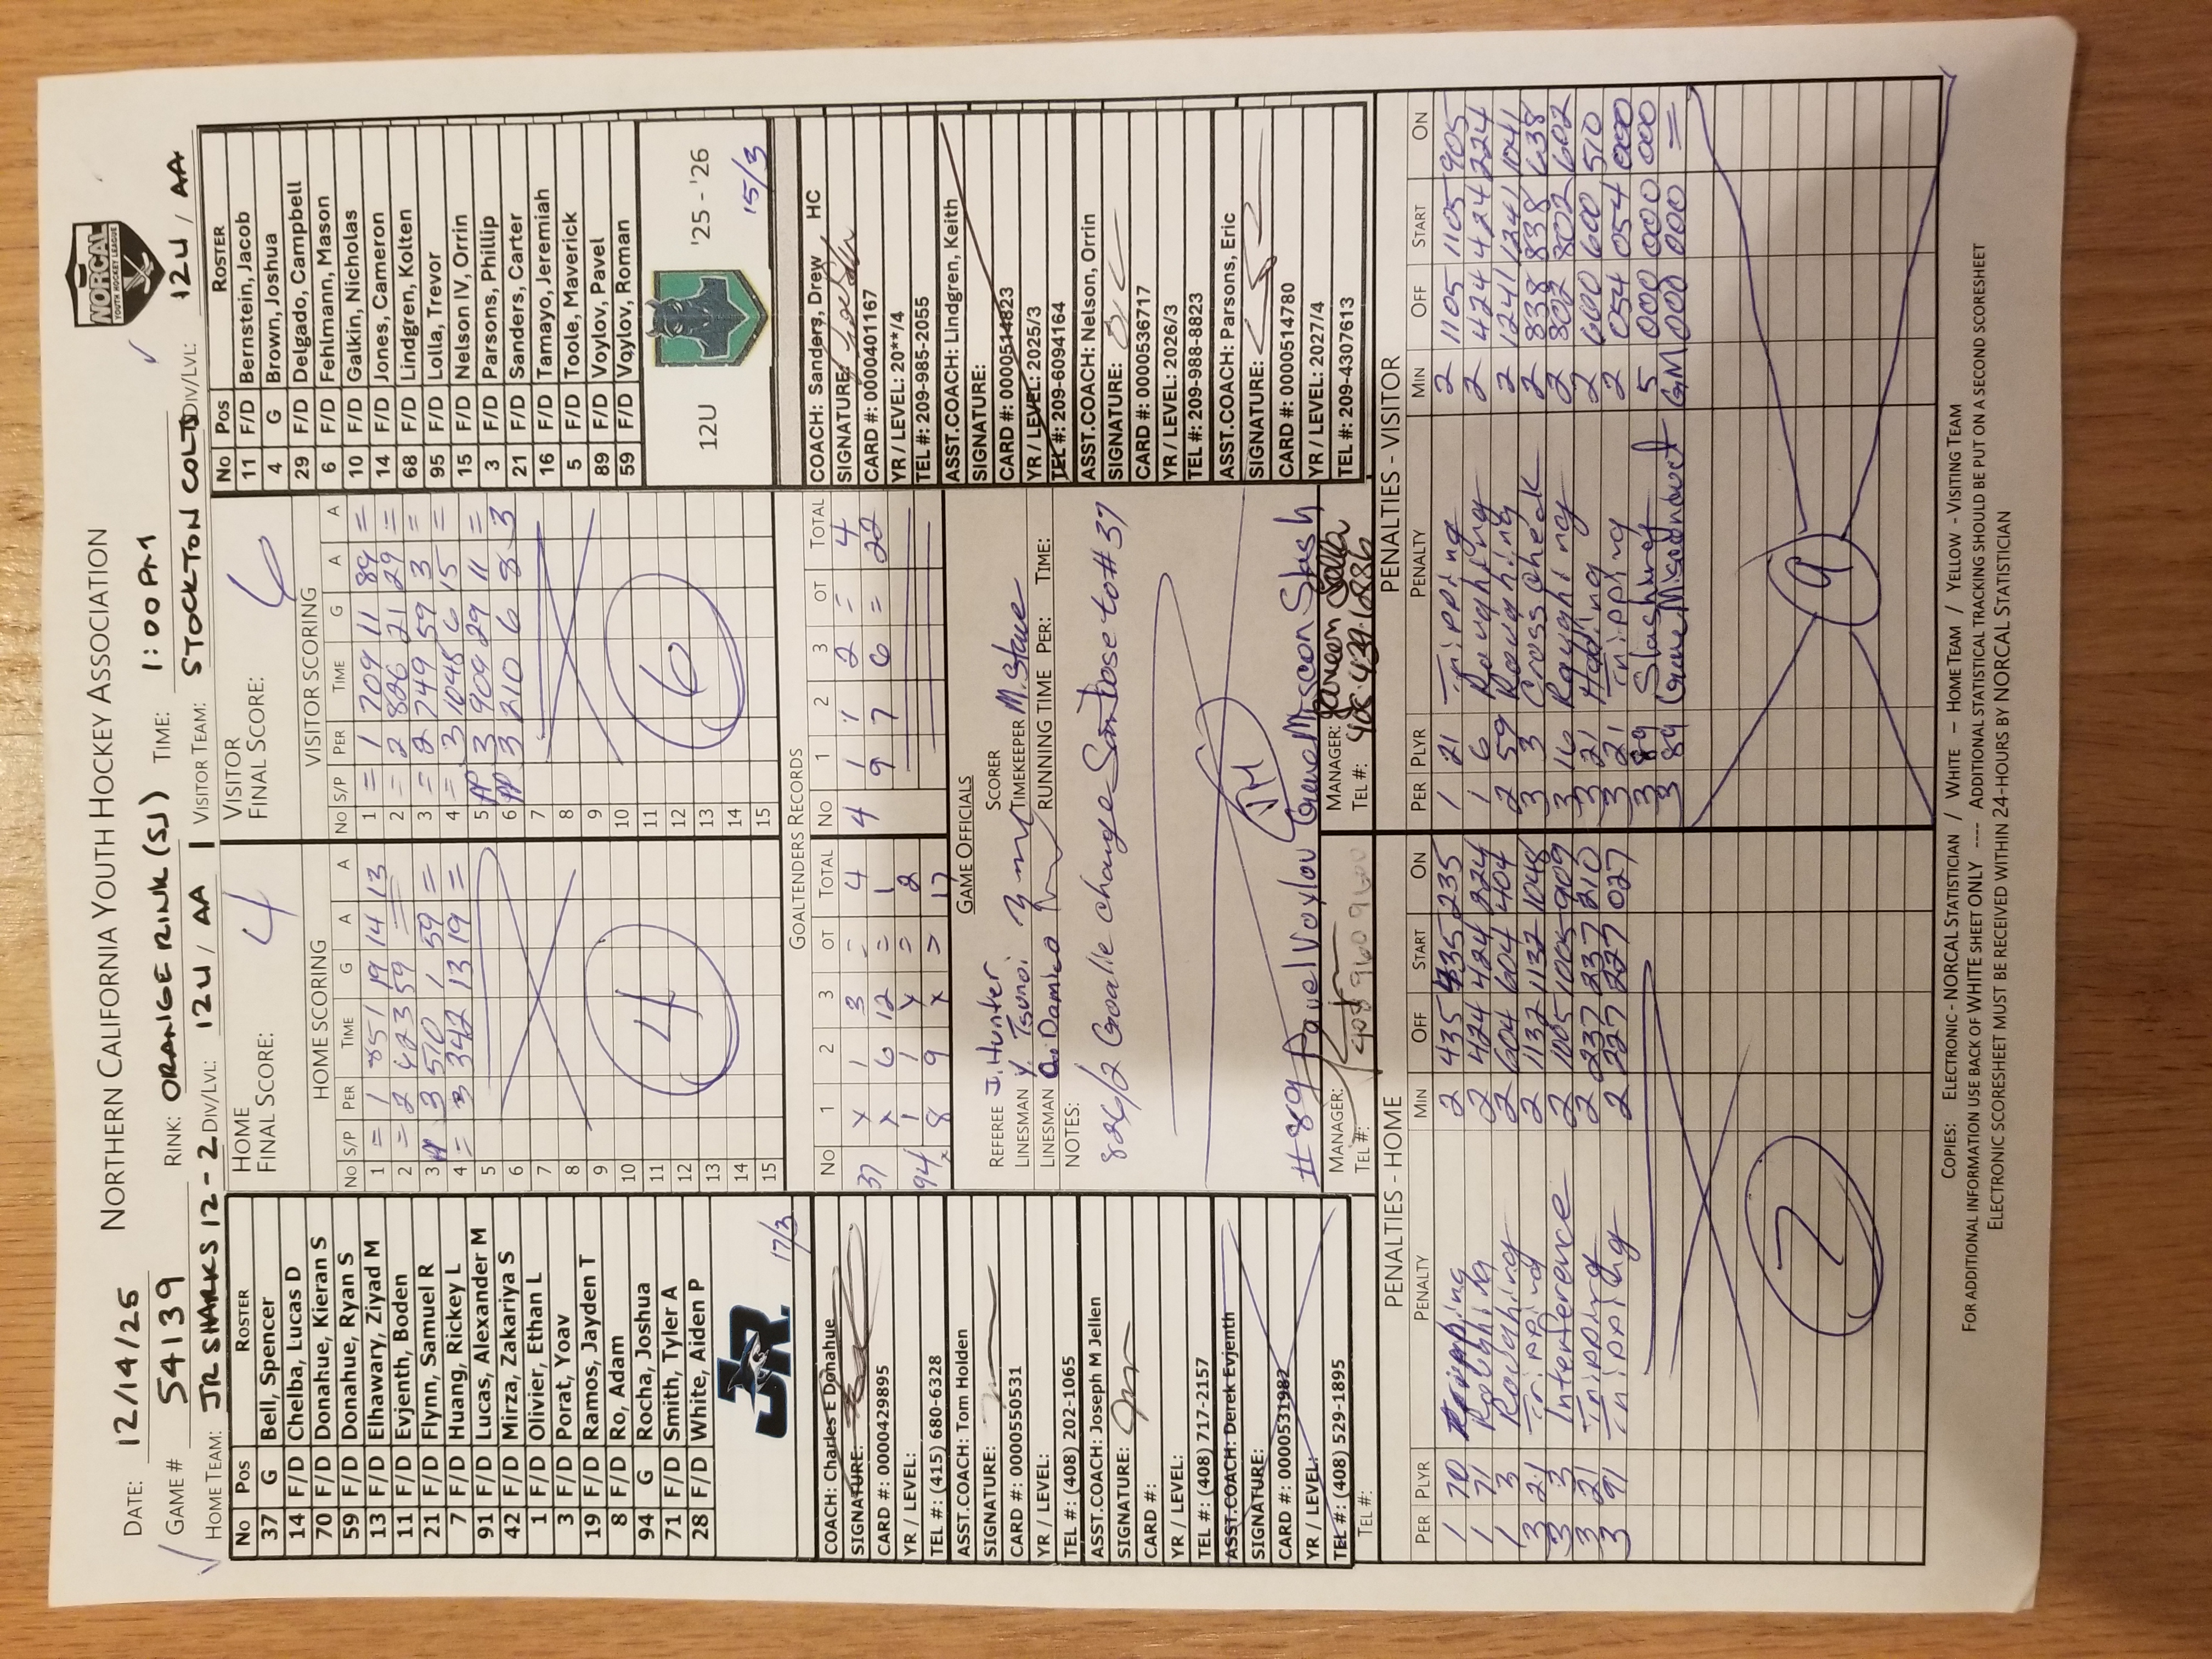 NORTHERN CALIFORNIA YOUTH HOCKEY ASSOCIATION
NORCAL
YOUTH HOCKEY LEAGUE
DATE: 12/14/25
GAME # 54139 RINK: ORANGE RINK (SJ) TIME: 1:00 PM
HOME TEAM: JR SHARKS 12-2 DIV/LVL: 12U / AA 1 VISITOR TEAM: STOCKTON COLTS DIV/LVL: 12U / AA
No Pos ROSTER
37 G Bell, Spencer
14 F/D Chelba, Lucas D
70 F/D Donahue, Kieran S
59 F/D Donahue, Ryan S
13 F/D Elhawary, Ziyad M
11 F/D Evjenth, Boden
21 F/D Flynn, Samuel R
7 F/D Huang, Rickey L
91 F/D Lucas, Alexander M
42 F/D Mirza, Zakariya S
1 F/D Olivier, Ethan L
3 F/D Porat, Yoav
19 F/D Ramos, Jayden T
8 F/D Ro, Adam
94 G Rocha, Joshua
71 F/D Smith, Tyler A
28 F/D White, Aiden P
JR.
17/3
COACH: Charles E Donahue
SIGNATURE:
CARD #: 0000429895
YR / LEVEL:
TEL #: (415) 680-6328
ASST.COACH: Tom Holden
SIGNATURE:
CARD #: 0000550531
YR / LEVEL:
TEL #: (408) 202-1065
ASST.COACH: Joseph M Jellen
SIGNATURE:
CARD #:
YR / LEVEL:
TEL #: (408) 717-2157
ASST.COACH: Derek Evjenth
SIGNATURE:
CARD #: 0000531982
YR / LEVEL:
TEL #: (408) 529-1895
TEL #:
HOME
FINAL SCORE: 4
HOME SCORING
No S/P PER TIME G A A
1 = 1 851 19 14 13
2 = 2 423 59 =
3 PP 3 510 1 59 =
4 = 3 342 13 19 =
5
6
7
8
9
10
11
12
13
14
15
4
VISITOR
FINAL SCORE: 6
VISITOR SCORING
No S/P PER TIME G A A
1 = 1 709 11 89 =
2 = 2 826 21 29 =
3 = 2 749 59 3 =
4 = 3 1048 6 15 =
5 PP 3 909 29 11 =
6 PP 3 210 6 8 3
7
8
9
10
11
12
13
14
15
6
No Pos ROSTER
11 F/D Bernstein, Jacob
4 G Brown, Joshua
29 F/D Delgado, Campbell
6 F/D Fehlmann, Mason
10 F/D Galkin, Nicholas
14 F/D Jones, Cameron
68 F/D Lindgren, Kolten
95 F/D Lolla, Trevor
15 F/D Nelson IV, Orrin
3 F/D Parsons, Phillip
21 F/D Sanders, Carter
16 F/D Tamayo, Jeremiah
5 F/D Toole, Maverick
89 F/D Voylov, Pavel
59 F/D Voylov, Roman
12U '25 - '26
15/3
COACH: Sanders, Drew HC
SIGNATURE:
CARD #: 0000401167
YR / LEVEL: 20**/4
TEL #: 209-985-2055
ASST.COACH: Lindgren, Keith
SIGNATURE:
CARD #: 0000514823
YR / LEVEL: 2025/3
TEL #: 209-6094164
ASST.COACH: Nelson, Orrin
SIGNATURE:
CARD #: 0000536717
YR / LEVEL: 2026/3
TEL #: 209-988-8823
ASST.COACH: Parsons, Eric
SIGNATURE:
CARD #: 0000514780
YR / LEVEL: 2027/4
TEL #: 209-4307613
GOALTENDERS RECORDS
No 1 2 3 OT TOTAL No 1 2 3 OT TOTAL
37 x 1 3 = 4 4 1 1 2 = 4
x 6 12 = 1 9 7 6 = 22
94 1 1 x = 2
8 9 x = 17
GAME OFFICIALS
REFEREE J. Hunter SCORER
LINESMAN Y. Tsunoi TIMEKEEPER M. Stave
LINESMAN A. Damico RUNNING TIME PER: TIME:
NOTES:
826/2 Goalie change San Jose to #37
#89 Pavel Voylov Game Miscon Slash
MANAGER: MANAGER:
TEL #: 408 960 9600 TEL #:
PENALTIES - HOME
PER PLYR PENALTY MIN OFF START ON
1 70 Tripping 2 435 435 235
1 71 Roughing 2 424 424 224
1 3 Roughing 2 604 604 404
3 21 Tripping 2 1132 1132 1048
3 3 Interference 2 1005 1005 909
3 21 Tripping 2 237 237 210
3 91 Tripping 2 227 227 027
7
PENALTIES - VISITOR
PER PLYR PENALTY MIN OFF START ON
1 21 Tripping 2 1105 1105 905
1 6 Roughing 2 424 424 224
2 59 Roughing 2 1241 1241 1041
3 3 Cross check 2 838 838 638
3 16 Roughing 2 802 802 602
3 21 Holding 2 600 600 510
3 21 Tripping 2 054 054 000
3 89 Slashing 5 000 000 000
3 89 Game Misconduct GM 000 000 =
9
COPIES: ELECTRONIC - NORCAL STATISTICIAN / WHITE – HOME TEAM / YELLOW - VISITING TEAM
FOR ADDITIONAL INFORMATION USE BACK OF WHITE SHEET ONLY ---- ADDITIONAL STATISTICAL TRACKING SHOULD BE PUT ON A SECOND SCORESHEET
ELECTRONIC SCORESHEET MUST BE RECEIVED WITHIN 24-HOURS BY NORCAL STATISTICIAN